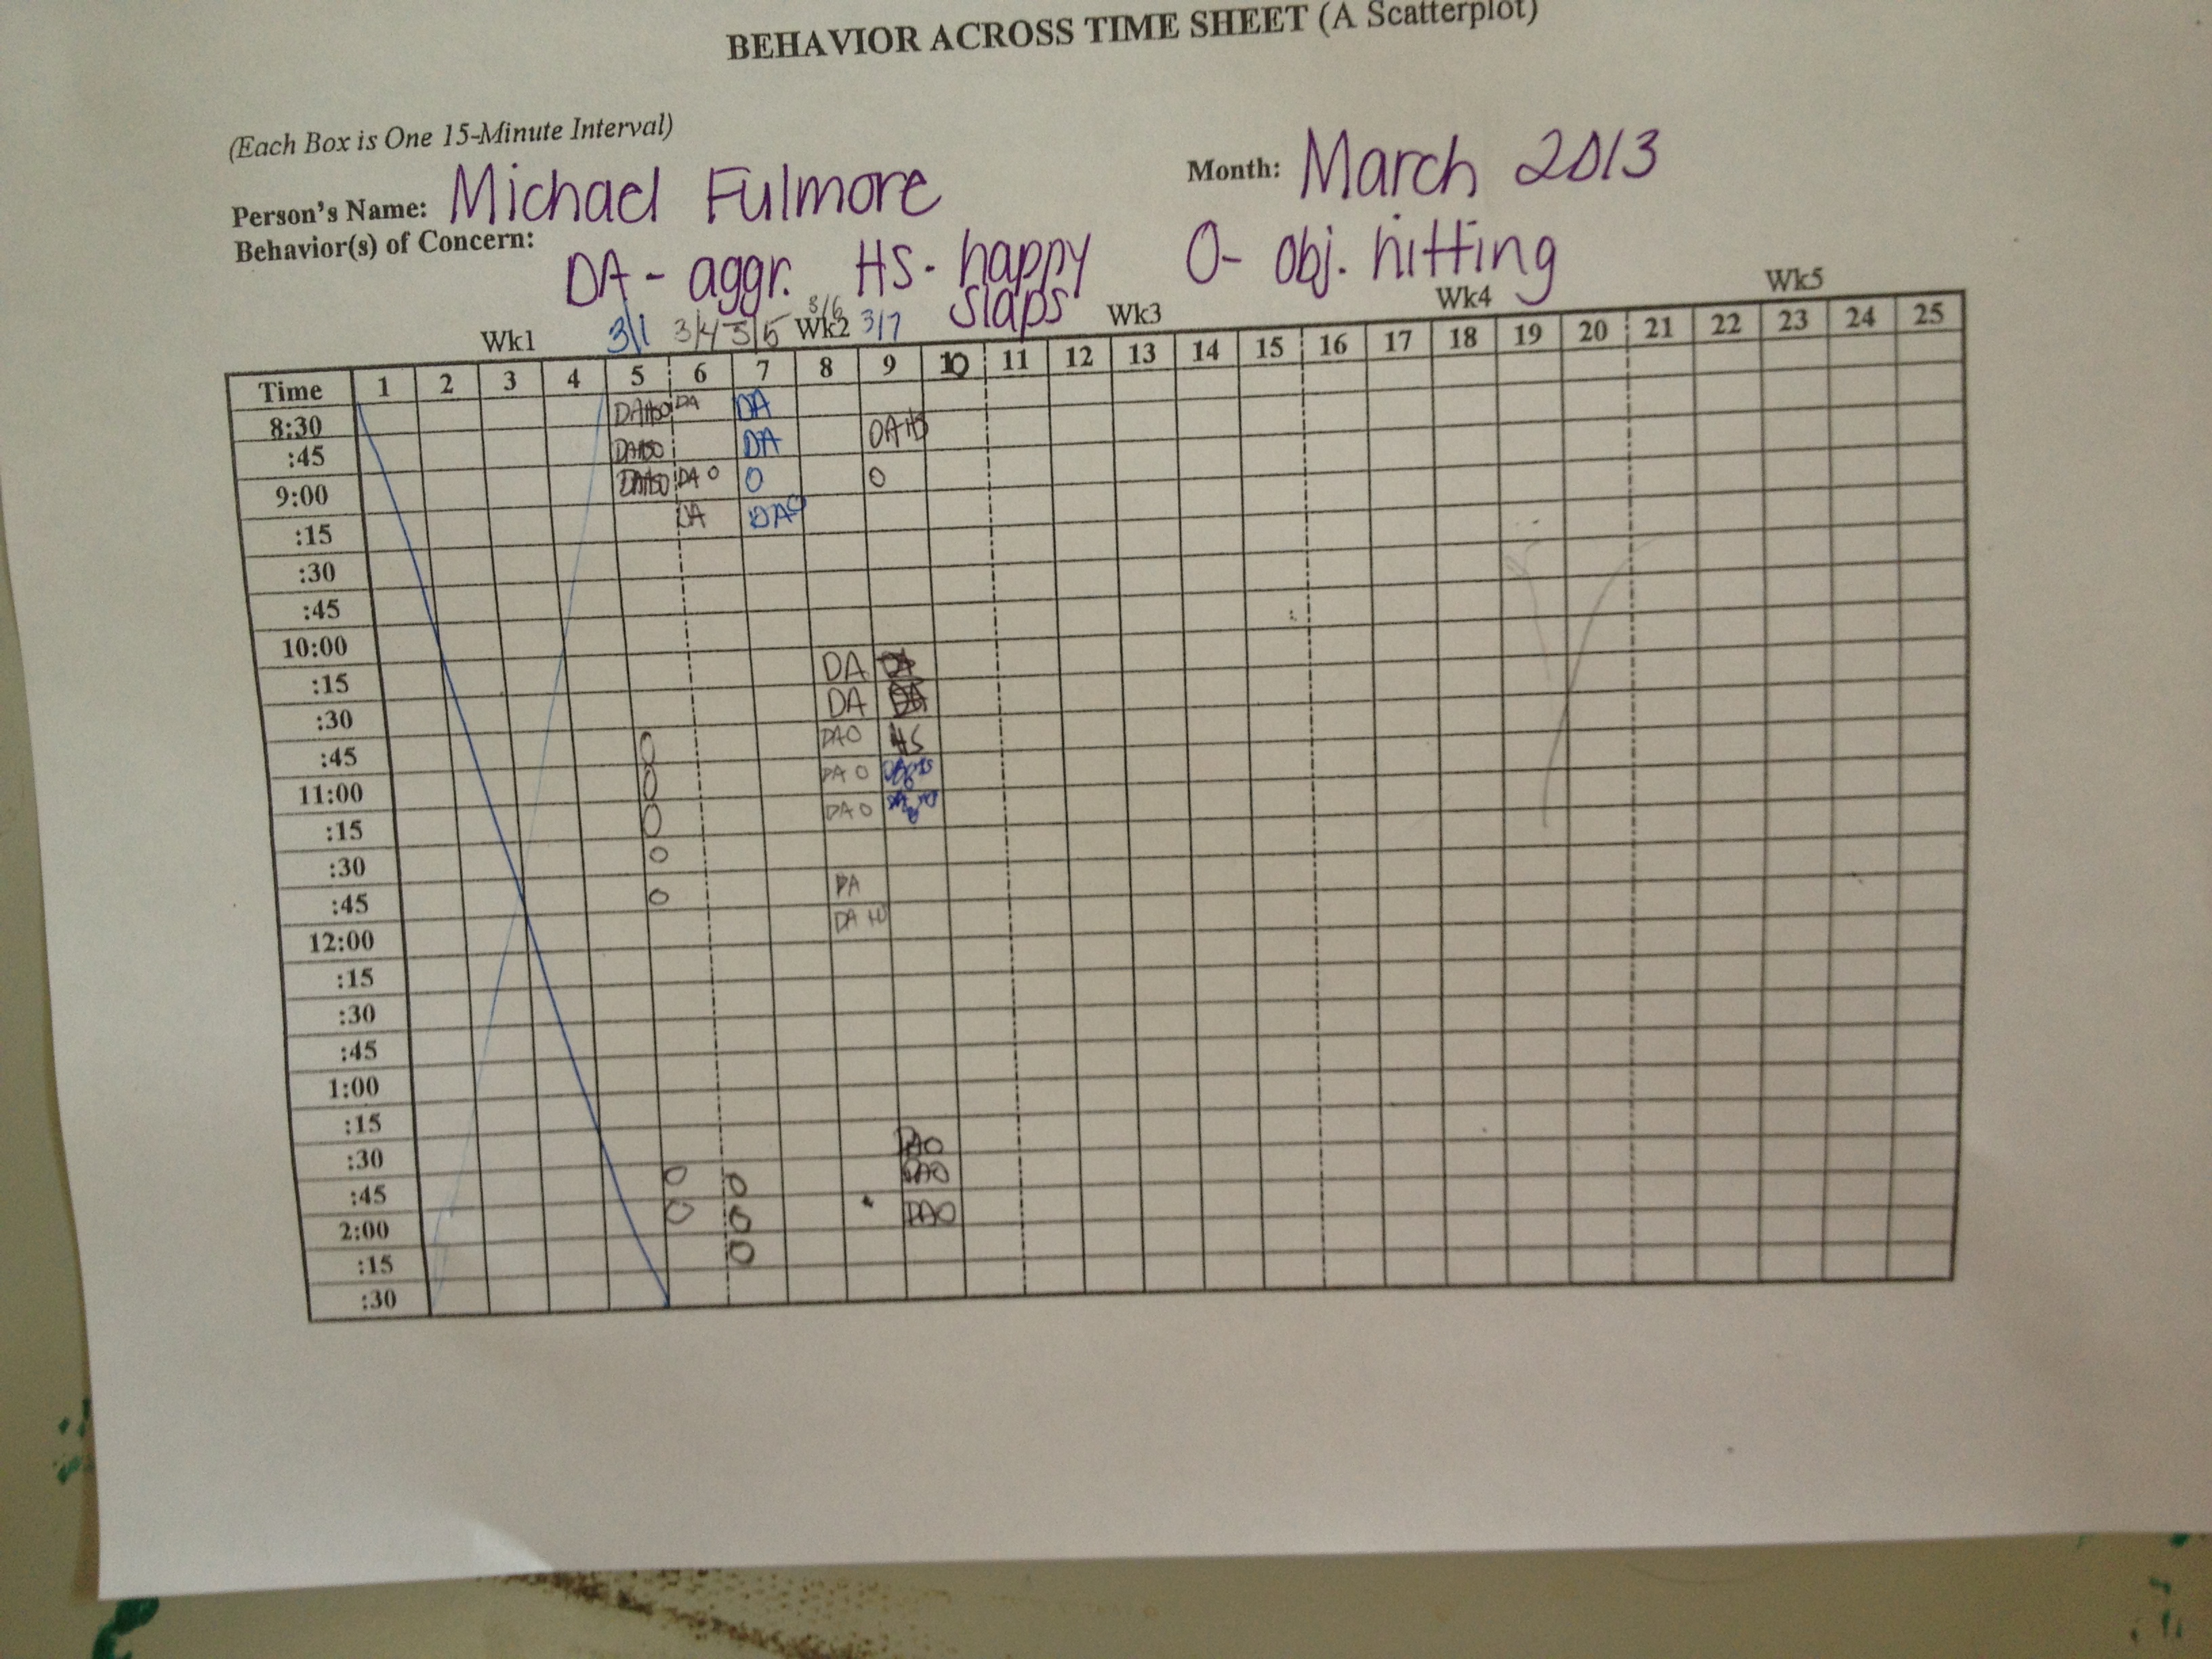 BEHAVIOR ACROSS TIME SHEET (A Scatterplot)
(Each Box is One 15-Minute Interval)
Person's Name: Michael Fulmore Month: March 2013
Behavior(s) of Concern: DA - aggr. HS - happy slaps O - obj. hitting
Wk1 3/1 3/4 3/5 Wk2 3/6 3/7 Wk3 Wk4 Wk5
Time 1 2 3 4 5 6 7 8 9 10 11 12 13 14 15 16 17 18 19 20 21 22 23 24 25
8:30 DAHSO DA DA
:45 DAHSO DA DAHS
9:00 DAHSO DA O O O
:15 DA DAO
:30
:45
10:00
:15 DA DA
:30 DA DA
:45 O DAO HS
11:00 O DA O
:15 O DA O
:30 O
:45 O DA
12:00 DA
:15
:30
:45
1:00
:15
:30 DAO
:45 O O DAO
2:00 O O DAO
:15 O
:30